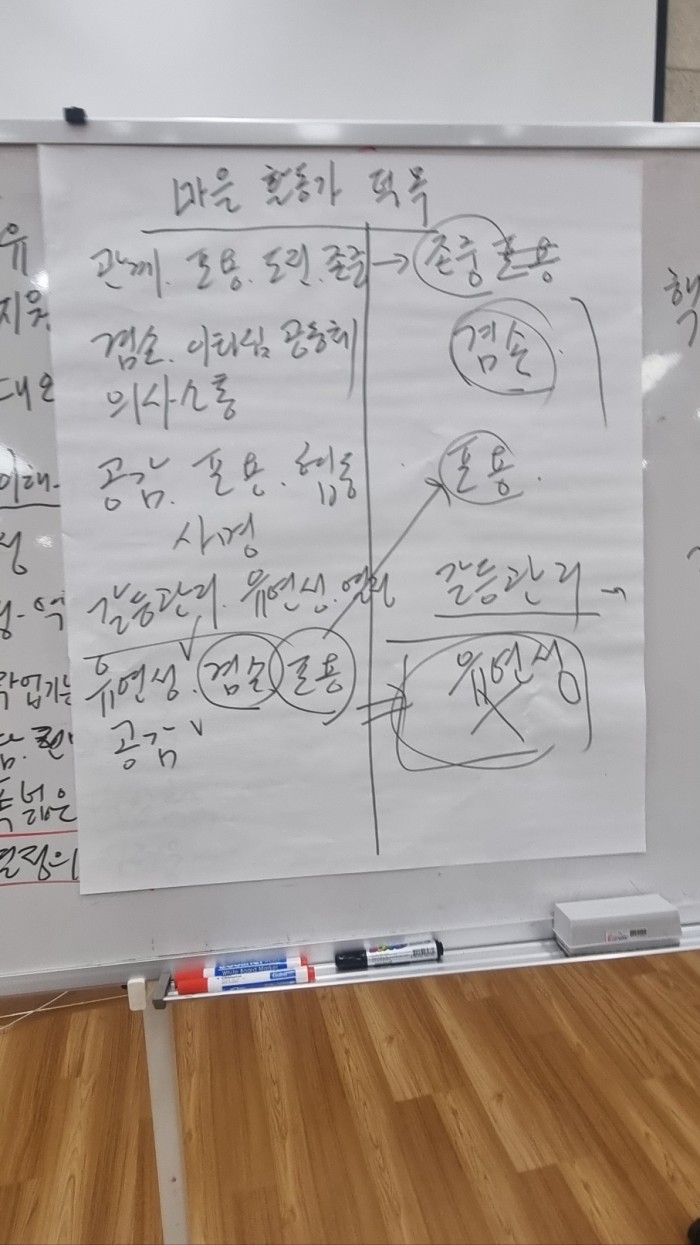 마을 활동가 덕목
관계. 포용. 도린. 존중 → 존중 포용
겸손. 이타심 공동체
겸손.
의사소통
공감. 포용. 협동
포용.
사명
갈등관리. 유연성.
갈등관리 →
유연성. 겸손 포용
유연성
공감
유
지원
이태
성
폭넓은
열정의
핵
White Board Marker